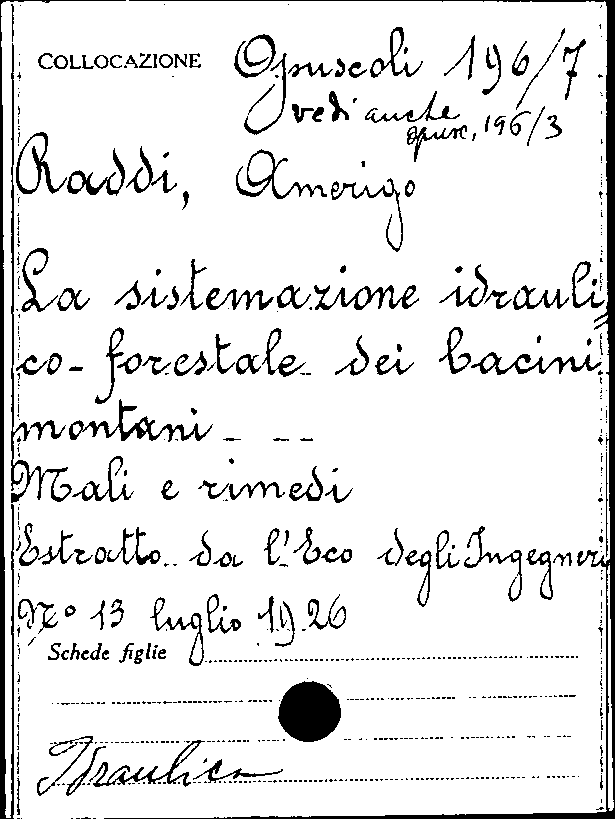 COLLOCAZIONE Opuscoli 196/7
vedi anche
opusc, 196/3
Raddi, Amerigo
La sistemazione idrauli
co-forestale dei bacini
montani - - -
Mali e rimedi
Estratto da l'Eco degli Ingegneri
N° 13 luglio 1926
Schede figlie
Idraulica